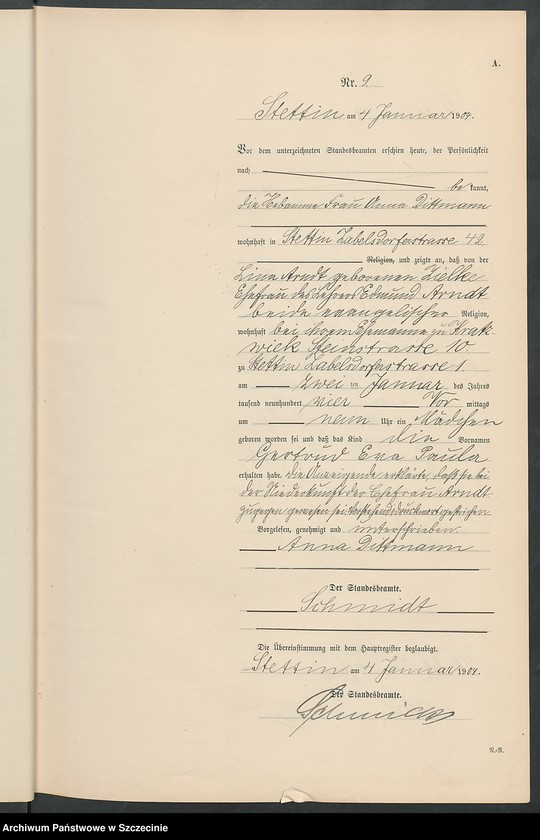 A.
Nr. 9.
Stettin am 4 Januar 1904.
Vor dem unterzeichneten Standesbeamten erschien heute, der Persönlichkeit
nach
bekannt,
die Hebamme Frau Anna Dittmann
wohnhaft in Stettin Zabelsdorferstrasse 42
Religion, und zeigte an, daß von der
Lina Arndt geborenen Zielke
Ehefrau des Lehrers Edmund Arndt
beide evangelischer Religion,
wohnhaft bei ihrem Ehemanne zu Kratz-
wiek Steinstrasse 10.
zu Stettin Zabelsdorferstrasse 1.
am zwei ten Januar des Jahres
tausend neunhundert vier Vor mittags
um neun Uhr ein Mädchen
geboren worden sei und daß das Kind die Vornamen
Gertrud Eva Paula
erhalten habe. die Anzeigende erklärte, daß sie bei
der Niederkunft der Ehefrau Arndt
zugegen gewesen sei. Vorstehend 1 Druckwort gestrichen.
Vorgelesen, genehmigt und unterschrieben.
Anna Dittmann
Der Standesbeamte.
Schmidt
Die Übereinstimmung mit dem Hauptregister beglaubigt.
Stettin am 4 Januar 1904.
Der Standesbeamte.
Schmidt
Archiwum Państwowe w Szczecinie